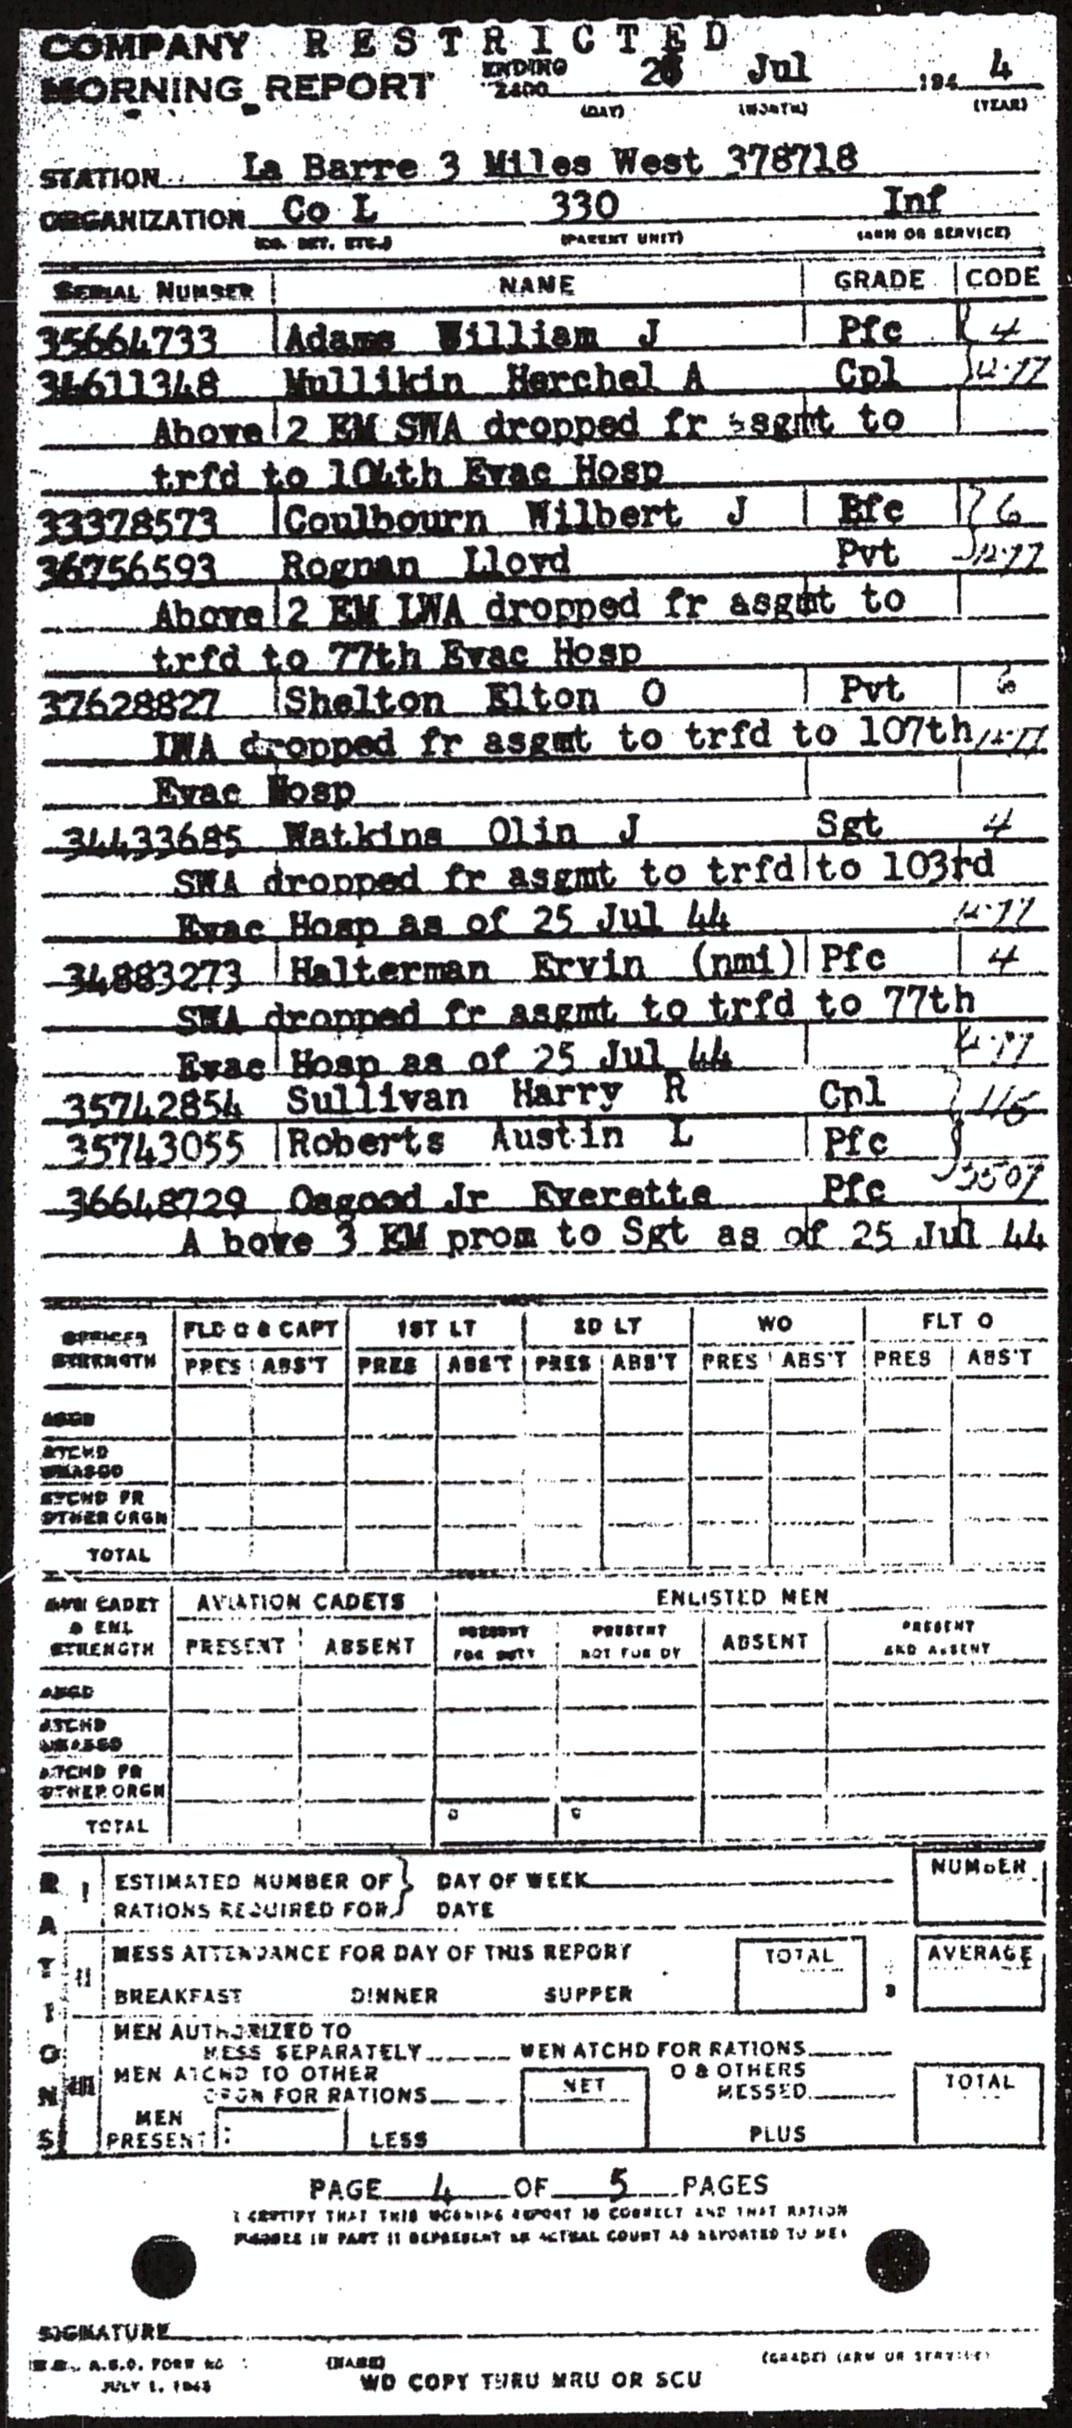 COMPANY RESTRICTED
MORNING REPORT ENDING 2400 26 Jul 194 4
(DAY) (MONTH) (YEAR)
STATION La Barre 3 Miles West 378718
ORGANIZATION Co L 330 Inf
(CO. DET. ETC.) (PARENT UNIT) (ARM OR SERVICE)
SERIAL NUMBER NAME GRADE CODE
35664733 Adams William J Pfc 4
34611348 Mullikin Herchel A Cpl 12-77
Above 2 EM SWA dropped fr asgmt to
trfd to 104th Evac Hosp
33378573 Coulbourn Wilbert J Pfc 6
36756593 Rognan Lloyd Pvt 12-77
Above 2 EM LWA dropped fr asgmt to
trfd to 77th Evac Hosp
37628827 Shelton Elton O Pvt 6
LWA dropped fr asgmt to trfd to 107th 12-77
Evac Hosp
34433685 Watkins Olin J Sgt 4
SWA dropped fr asgmt to trfd to 103rd
Evac Hosp as of 25 Jul 44 12-77
34883273 Halterman Ervin (nmi) Pfc 4
SWA dropped fr asgmt to trfd to 77th
Evac Hosp as of 25 Jul 44 12-77
35742854 Sullivan Harry R Cpl 116
35743055 Roberts Austin L Pfc
36648729 Osgood Jr Everette Pfc 3507
A bove 3 EM prom to Sgt as of 25 Jul 44
OFFICER STRENGTH FLD O & CAPT 1ST LT 2D LT WO FLT O
PRES ABS'T PRES ABS'T PRES ABS'T PRES ABS'T PRES ABS'T
ASGD
ATCHD UNASGD
ATCHD FR OTHER ORGN
TOTAL
AVN CADET & ENL STRENGTH AVIATION CADETS ENLISTED MEN
PRESENT ABSENT PRESENT FOR DUTY PRESENT NOT FOR DY ABSENT PRESENT AND ABSENT
ASGD
ATCHD UNASGD
ATCHD FR OTHER ORGN
TOTAL
RATIONS
I ESTIMATED NUMBER OF DAY OF WEEK NUMBER
RATIONS REQUIRED FOR DATE
II MESS ATTENDANCE FOR DAY OF THIS REPORT TOTAL AVERAGE
BREAKFAST DINNER SUPPER 3
III MEN AUTHORIZED TO
MESS SEPARATELY MEN ATCHD FOR RATIONS
MEN ATCHD TO OTHER O & OTHERS
ORGN FOR RATIONS NET MESSED TOTAL
MEN
PRESENT LESS PLUS
PAGE 4 OF 5 PAGES
I CERTIFY THAT THIS MORNING REPORT IS CORRECT AND THAT RATION
FIGURES IN PART II REPRESENT AN ACTUAL COUNT AS REPORTED TO ME:
SIGNATURE
W.D., A.G.O. FORM NO (NAME) (GRADE) (ARM OR SERVICE)
JULY 1, 1943 WD COPY THRU MRU OR SCU